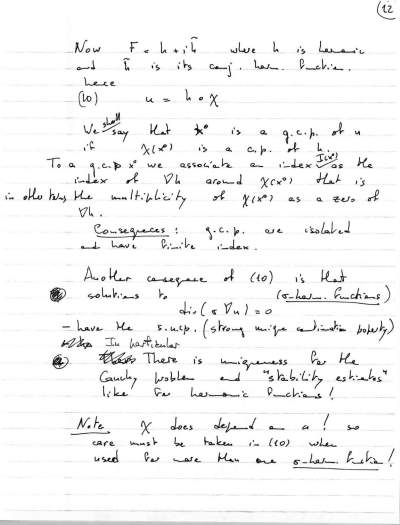 12
Now F = h + i h̃ where h is harmonic
and h̃ is its conj. harm. function.
hence
(10) u = h ∘ χ
We shall say that x° is a g.c.p. of u
if χ(x°) is a c.p. of h.
To a g.c.p x° we associate an index I(x°) as the
index of ∇h around χ(x°) that is
in other terms the multiplicity of χ(x°) as a zero of
∇h.
Consequences : g.c.p. are isolated
and have finite index.
Another consequence of (10) is that
solutions to (σ-harm. functions)
div(σ ∇u) = 0
- have the s.u.c.p. (strong unique continuation property)
In particular
There is uniqueness for the
Cauchy problem and "stability estimates"
like for harmonic functions!
Note χ does depend on u! so
care must be taken in (10) when
used for more than one σ-harm. function!